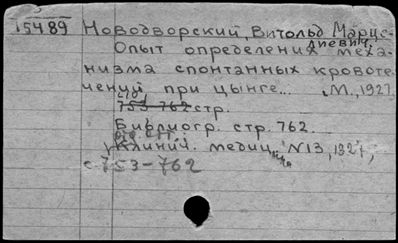 15489 Новодворский, Витольд Марце-
лиевич.
Опыт определения меха-
низма спонтанных кровоте-
чений при цынге... М., 1927.
753-762 стр.
Библиогр. стр. 762.
Клинич. медицина N13, 1927,
с. 753-762